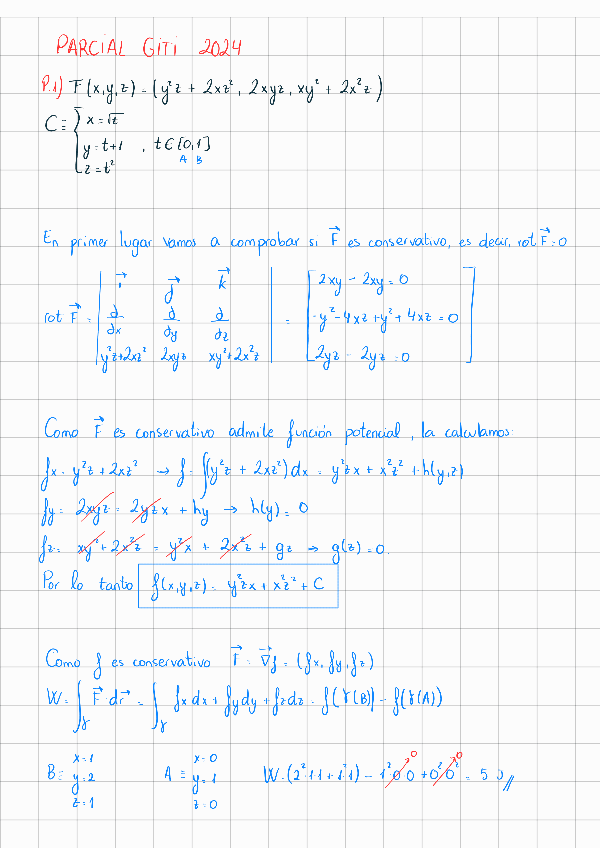 PARCIAL GITI 2024
P.1) F(x,y,z) = (y²z + 2xz², 2xyz, xy² + 2x²z)
C ≡ { x = √t
y = t+1 , t ∈ [0,1]
z = t² A B
En primer lugar vamos a comprobar si F⃗ es conservativo, es decir, rot F⃗ = 0
i⃗ j⃗ k⃗ 2xy - 2xy = 0
rot F⃗ = d/dx d/dy d/dz = -y² - 4xz + y² + 4xz = 0
y²z+2xz² 2xyz xy²+2x²z 2yz - 2yz = 0
Como F⃗ es conservativo admite función potencial, la calculamos:
fx = y²z + 2xz² → f = ∫(y²z + 2xz²)dx = y²zx + x²z² + h(y,z)
fy = 2xyz = 2yzx + hy → h(y) = 0
fz = xy² + 2x²z = y²x + 2x²z + gz → g(z) = 0.
Por lo tanto f(x,y,z) = y²zx + x²z² + C
Como f es conservativo F⃗ = ∇⃗f = (fx, fy, fz)
W = ∫γ F⃗ · dr⃗ = ∫γ fx dx + fy dy + fz dz = f(γ(B)) - f(γ(A))
B ≡ x=1 A ≡ x=0
y=2 y=1 W = (2²·1·1 + 1²·1²) - 1²·0·0 + 0²·0² = 5 J
z=1 z=0